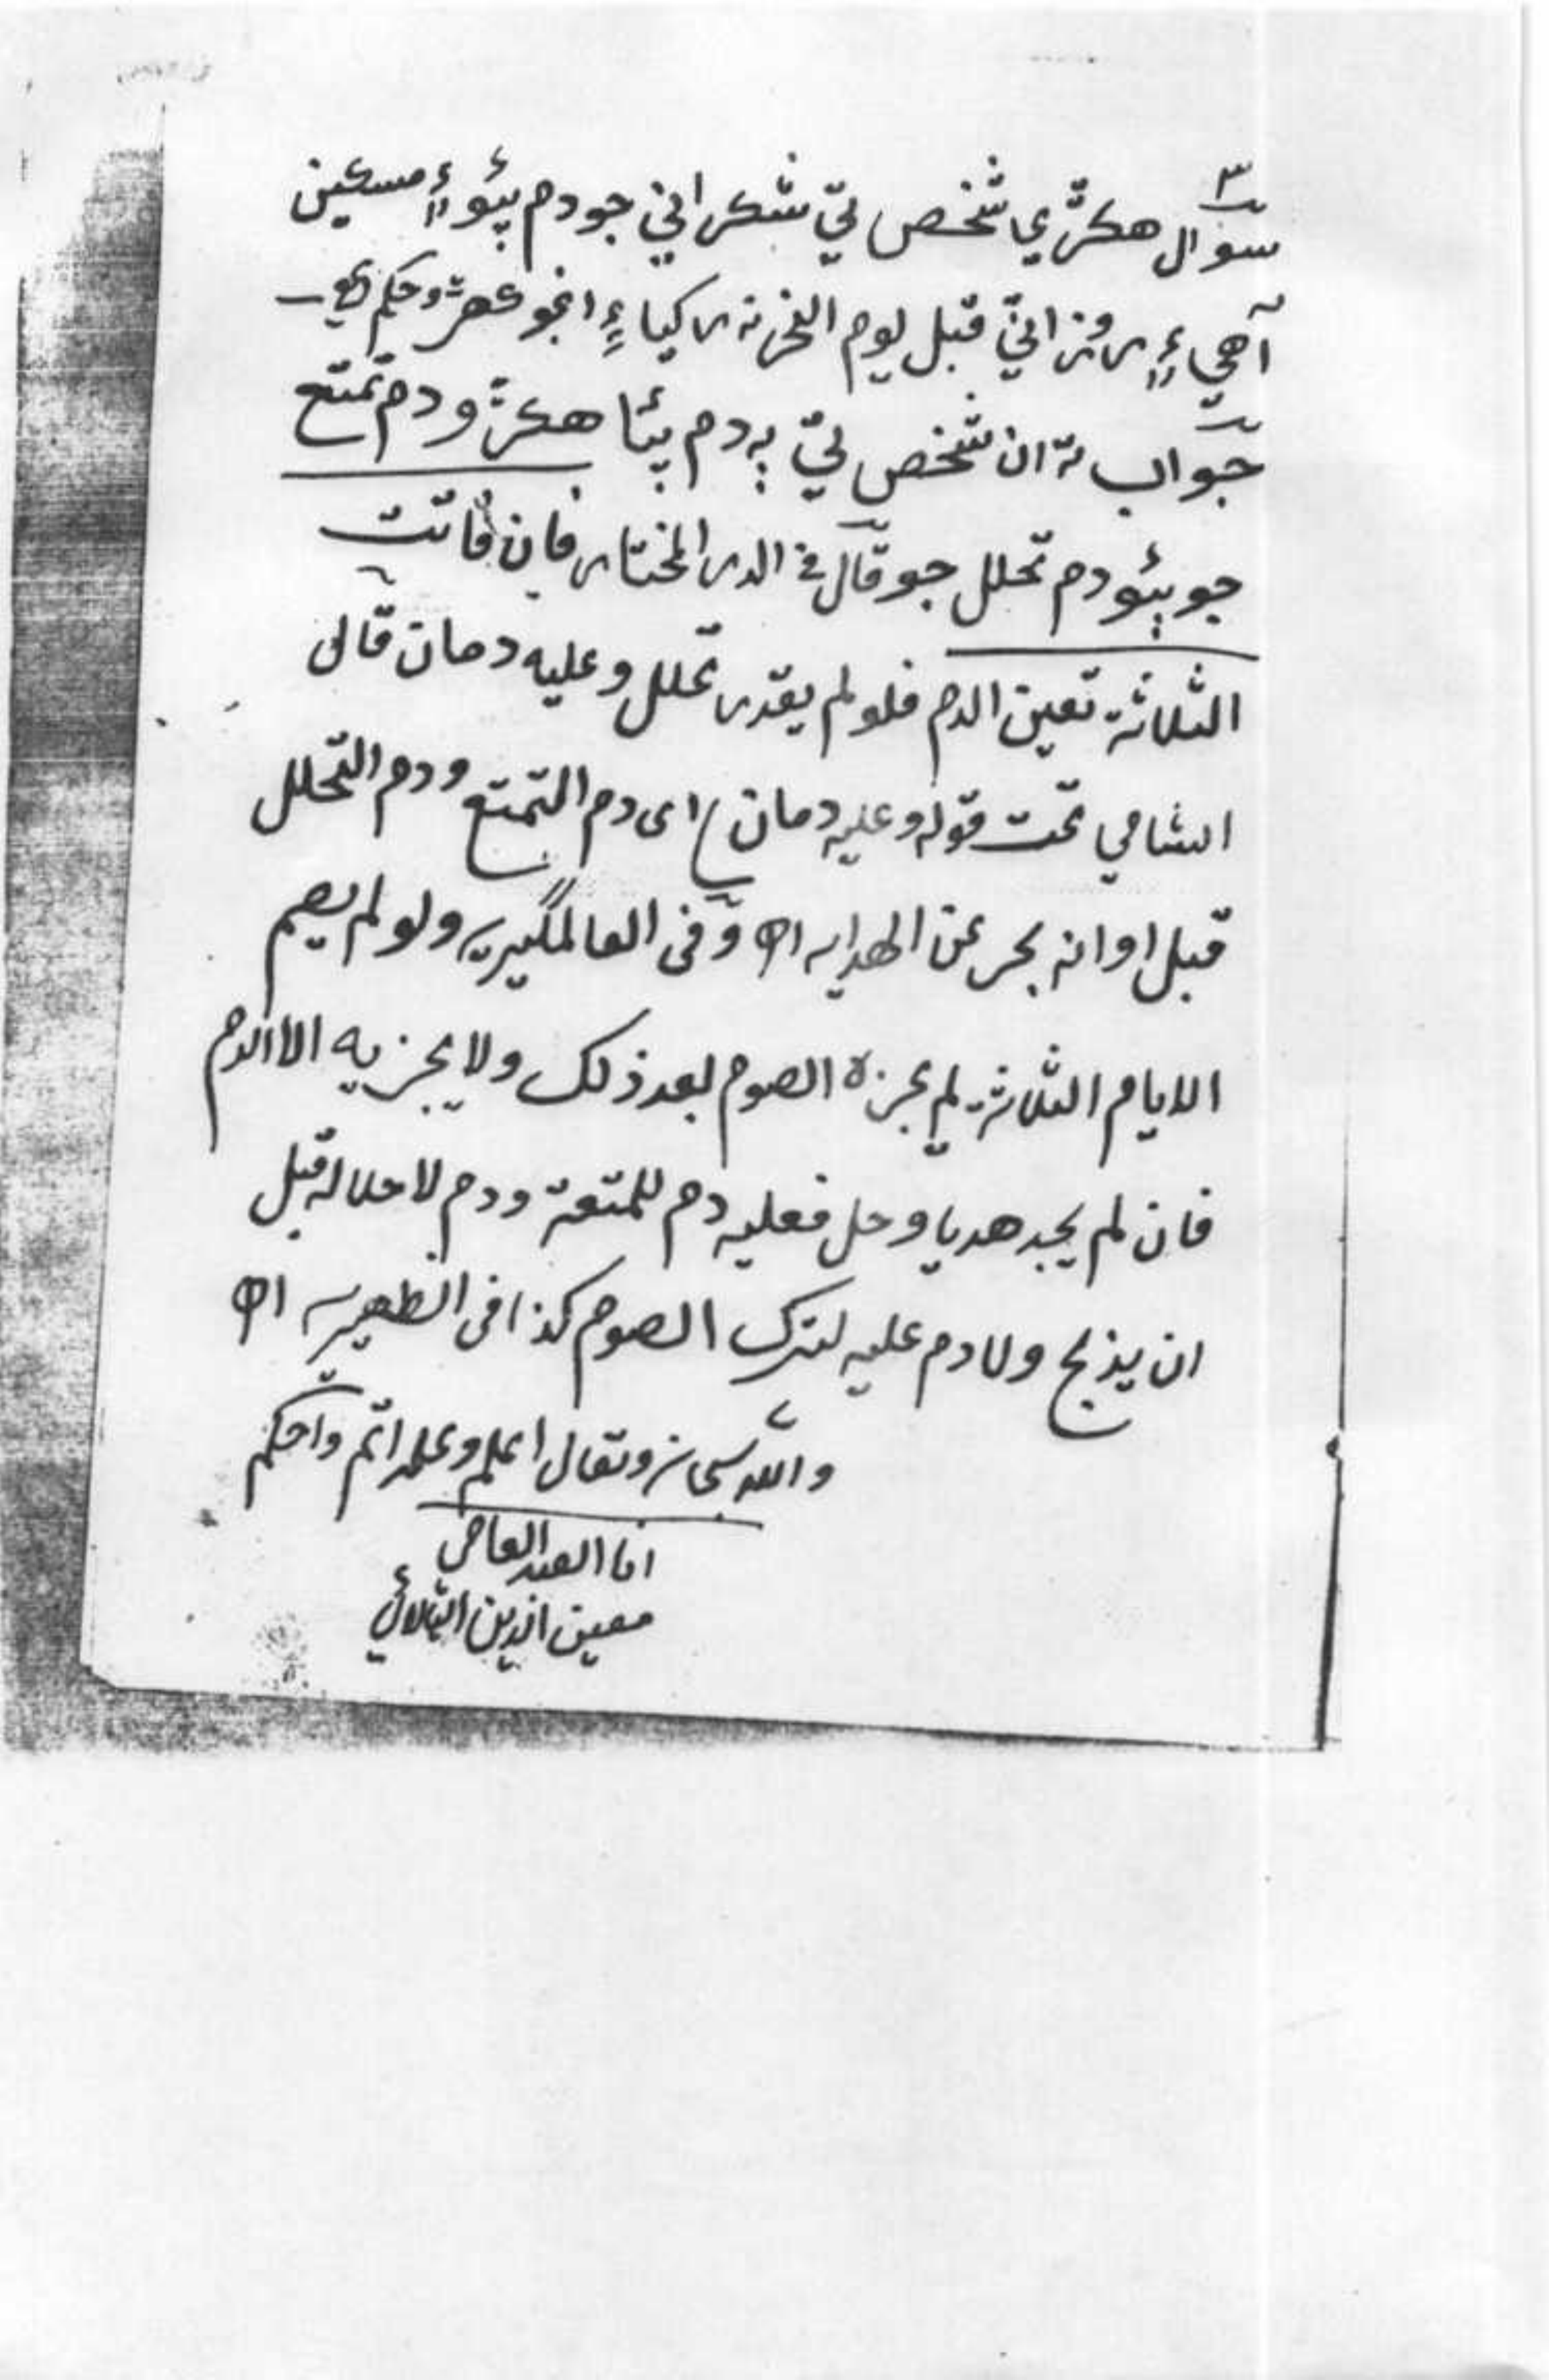 ۳
سوال هڪڙي شخص تي شڪراني جو دم پيو ۽ مسڪين
آهي ۽ روزا اني قبل يوم النحر نه رکيا ۽ انجو عمر وحڪم
جواب ته ان شخص تي ٻه دم پيا هڪڙو دم تمتع
جو ٻيو دم تحلل جو قال في الدر المختار فان فاتت
الثلاثة تعين الدم فلو لم يقدر تحلل وعليه دمان قال
الشامي تحت قوله وعليه دمان اي دم التمتع ودم التحلل
قبل اوانه بحر عن الهدايه اھ وفي العالمگيريه ولو لم يصم
الايام الثلاثة لم يجزه الصوم بعد ذلک ولا يجزيه الا الدم
فان لم يجد هديا وحل فعليه دم للمتعة ودم لاحلاله قبل
ان يذبح ولا دم عليه لترک الصوم کذا في الظهيريه اھ
والله سبحانه وتعالى اعلم وعلمه اتم واحکم
انا العبد العاصي
معين الدين